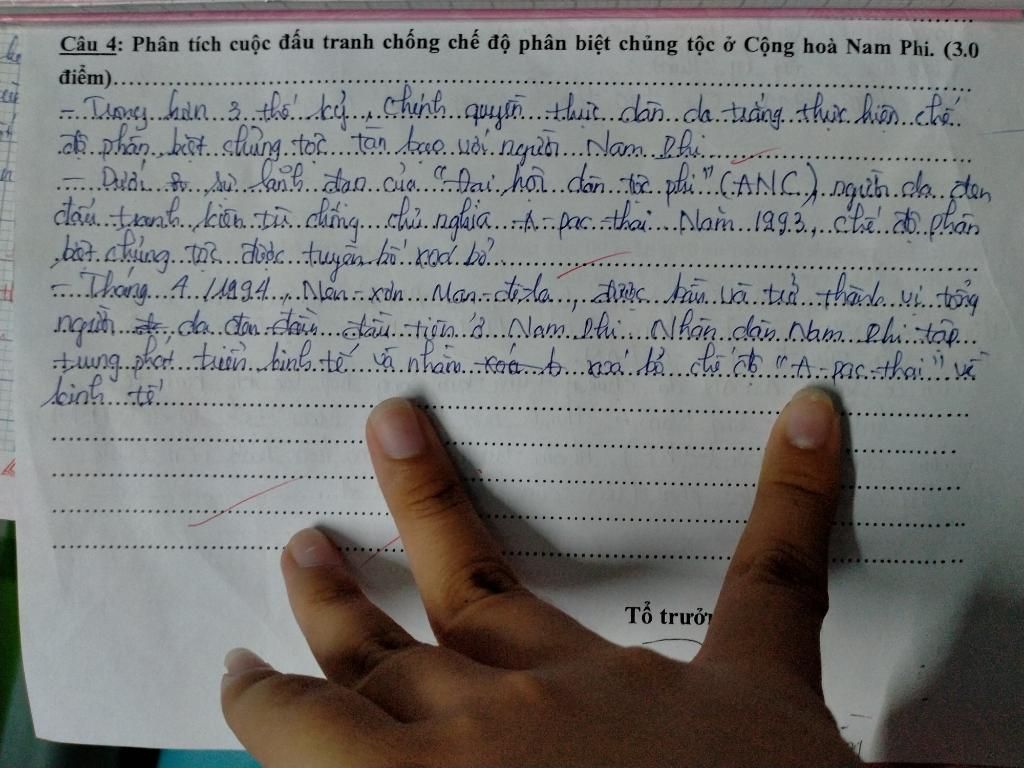 Câu 4: Phân tích cuộc đấu tranh chống chế độ phân biệt chủng tộc ở Cộng hoà Nam Phi. (3.0
điểm)
- Trong hơn 3 thế kỷ, chính quyền thực dân da trắng thực hiện chế
độ phân biệt chủng tộc tàn bạo với người Nam Phi
- Dưới sự lãnh đạo của "Đại hội dân tộc phi" (ANC) người da đen
đấu tranh kiên trì chống chủ nghĩa A-pac-thai. Năm 1993, chế độ phân
biệt chủng tộc được tuyên bố xoá bỏ
- Tháng 4/1994, Nen-xơn Man-đêla, được bầu và trở thành vị tổng
người da đen đầu tiên ở Nam Phi. Nhân dân Nam Phi tập
trung phát triển kinh tế và nhằm xoá bỏ chế độ "A-pac-thai" về
kinh tế
Tổ trưởn